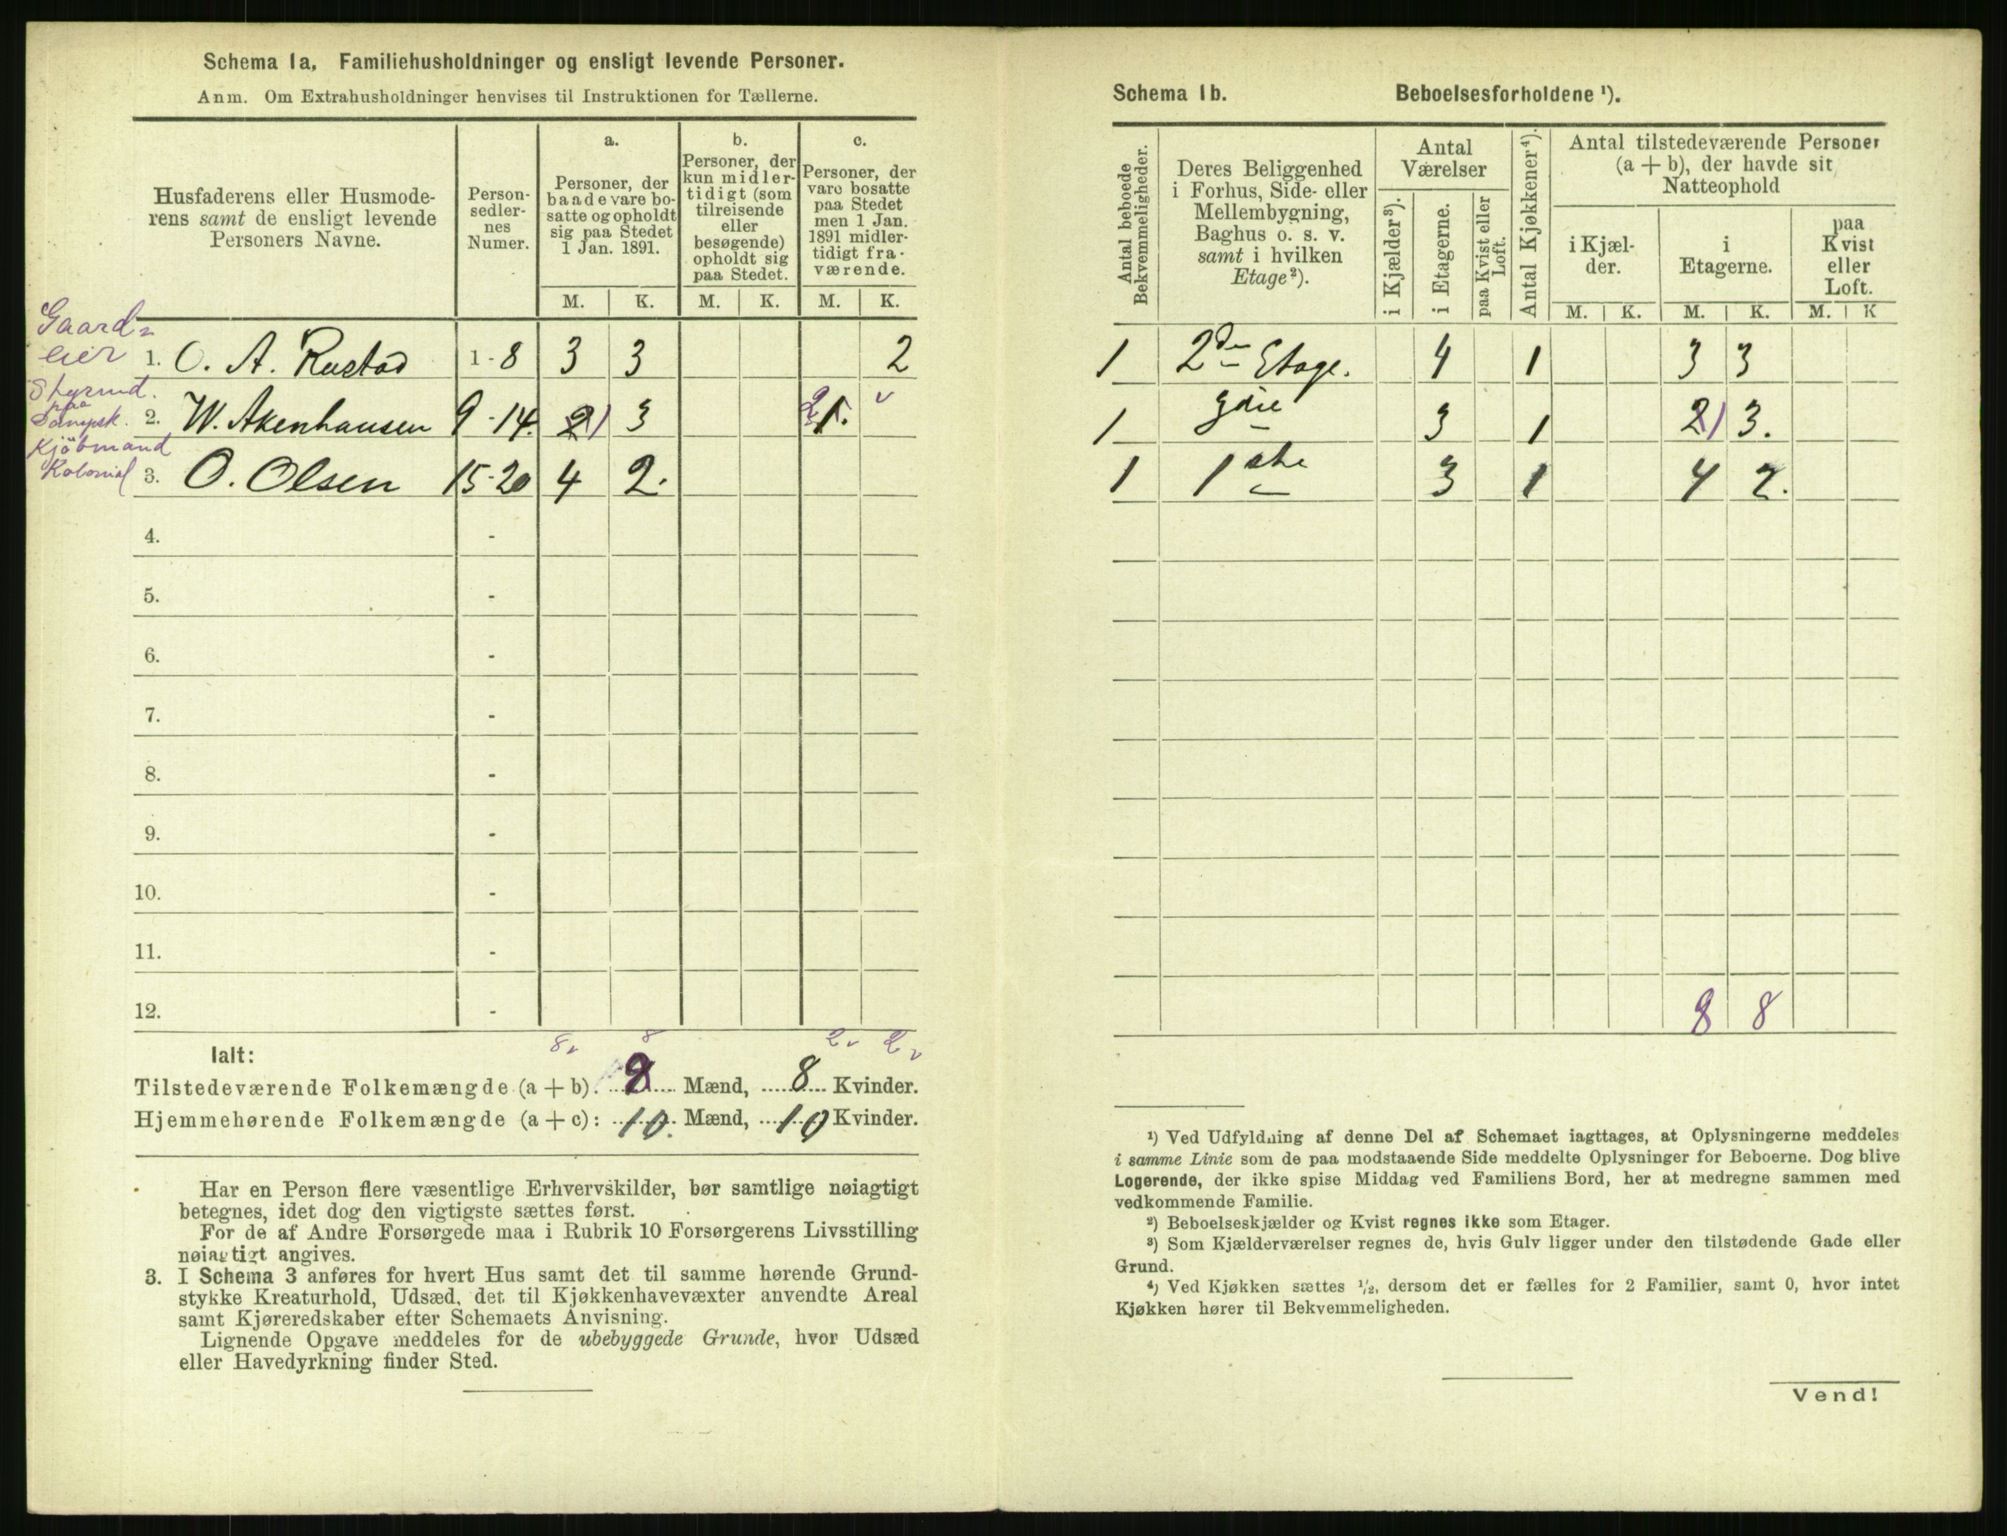 Schema 1a, Familiehusholdninger og ensligt levende Personer.
Anm. Om Extrahusholdninger henvises til Instruktionen for Tællerne.
Husfaderens eller Husmode-
rens samt de ensligt levende
Personers Navne.
Person-
sedler-
nes
Numer.
a.
Personer, der
baade vare bo-
satte og opholdt
sig paa Stedet
1 Jan. 1891.
b.
Personer, der
kun midler-
tidigt (som
tilreisende
eller
besøgende)
opholdt sig
paa Stedet.
c.
Personer, der
vare bosatte
paa Stedet
men 1 Jan.
1891 midler-
tidigt fra-
værende.
M. K. M. K. M. K.
Gaard-
eier 1. O. A. Rustad 1-8 3 3 2
Styrmd.
paa
Dampsk. 2. W. Akenhausen 9-14. 2) 3 2 1.
Kjöbmand
Kolonial 3. O. Olsen 15-20 4 2.
4. -
5. -
6. -
7. -
8. -
9. -
10. -
11. -
12. -
8 8 2 2
Ialt:
Tilstedeværende Folkemængde (a + b). 8 Mænd, 8 Kvinder.
Hjemmehørende Folkemængde (a + c): 10. Mænd, 10 Kvinder.
Har en Person flere væsentlige Erhvervskilder, bør samtlige nøiagtigt
betegnes, idet dog den vigtigste sættes først.
For de af Andre Forsørgede maa i Rubrik 10 Forsørgerens Livsstilling
nøiagtigt angives.
3. I Schema 3 anføres for hvert Hus samt det til samme hørende Grund-
stykke Kreaturhold, Udsæd, det til Kjøkkenhavevæxter anvendte Areal
samt Kjøreredskaber efter Schemaets Anvisning.
Lignende Opgave meddeles for de ubebyggede Grunde, hvor Udsæd
eller Havedyrkning finder Sted.
Schema 1b. Beboelsesforholdene ¹).
Antal beboede
Bekvemmeligheder.
Deres Beliggenhed
i Forhus, Side- eller
Mellembygning,
Baghus o. s. v.
samt i hvilken
Etage²).
Antal
Værelser
i Kjælder³).
i Etagerne.
paa Kvist eller
Loft.
Antal Kjøkkener⁴).
Antal tilstedeværende Personer
(a + b), der havde sit
Natteophold
i Kjæl-
der.
i
Etagerne.
paa
Kvist
eller
Loft.
M. K. M. K. M. K
1 2den Etage. 4 1 3 3
1 3 1 2) 3.
1 1ste 3 1 4 2.
8 8
¹) Ved Udfyldning af denne Del af Schemaet iagttages, at Oplysningerne meddeles
i samme Linie som de paa modstaaende Side meddelte Oplysninger for Beboerne. Dog blive
Logerende, der ikke spise Middag ved Familiens Bord, her at medregne sammen med
vedkommende Familie.
²) Beboelseskjælder og Kvist regnes ikke som Etager.
³) Som Kjælderværelser regnes de, hvis Gulv ligger under den tilstødende Gade eller
Grund.
⁴) Ved Kjøkken sættes ½, dersom det er fælles for 2 Familier, samt 0, hvor intet
Kjøkken hører til Bekvemmeligheden.
Vend!